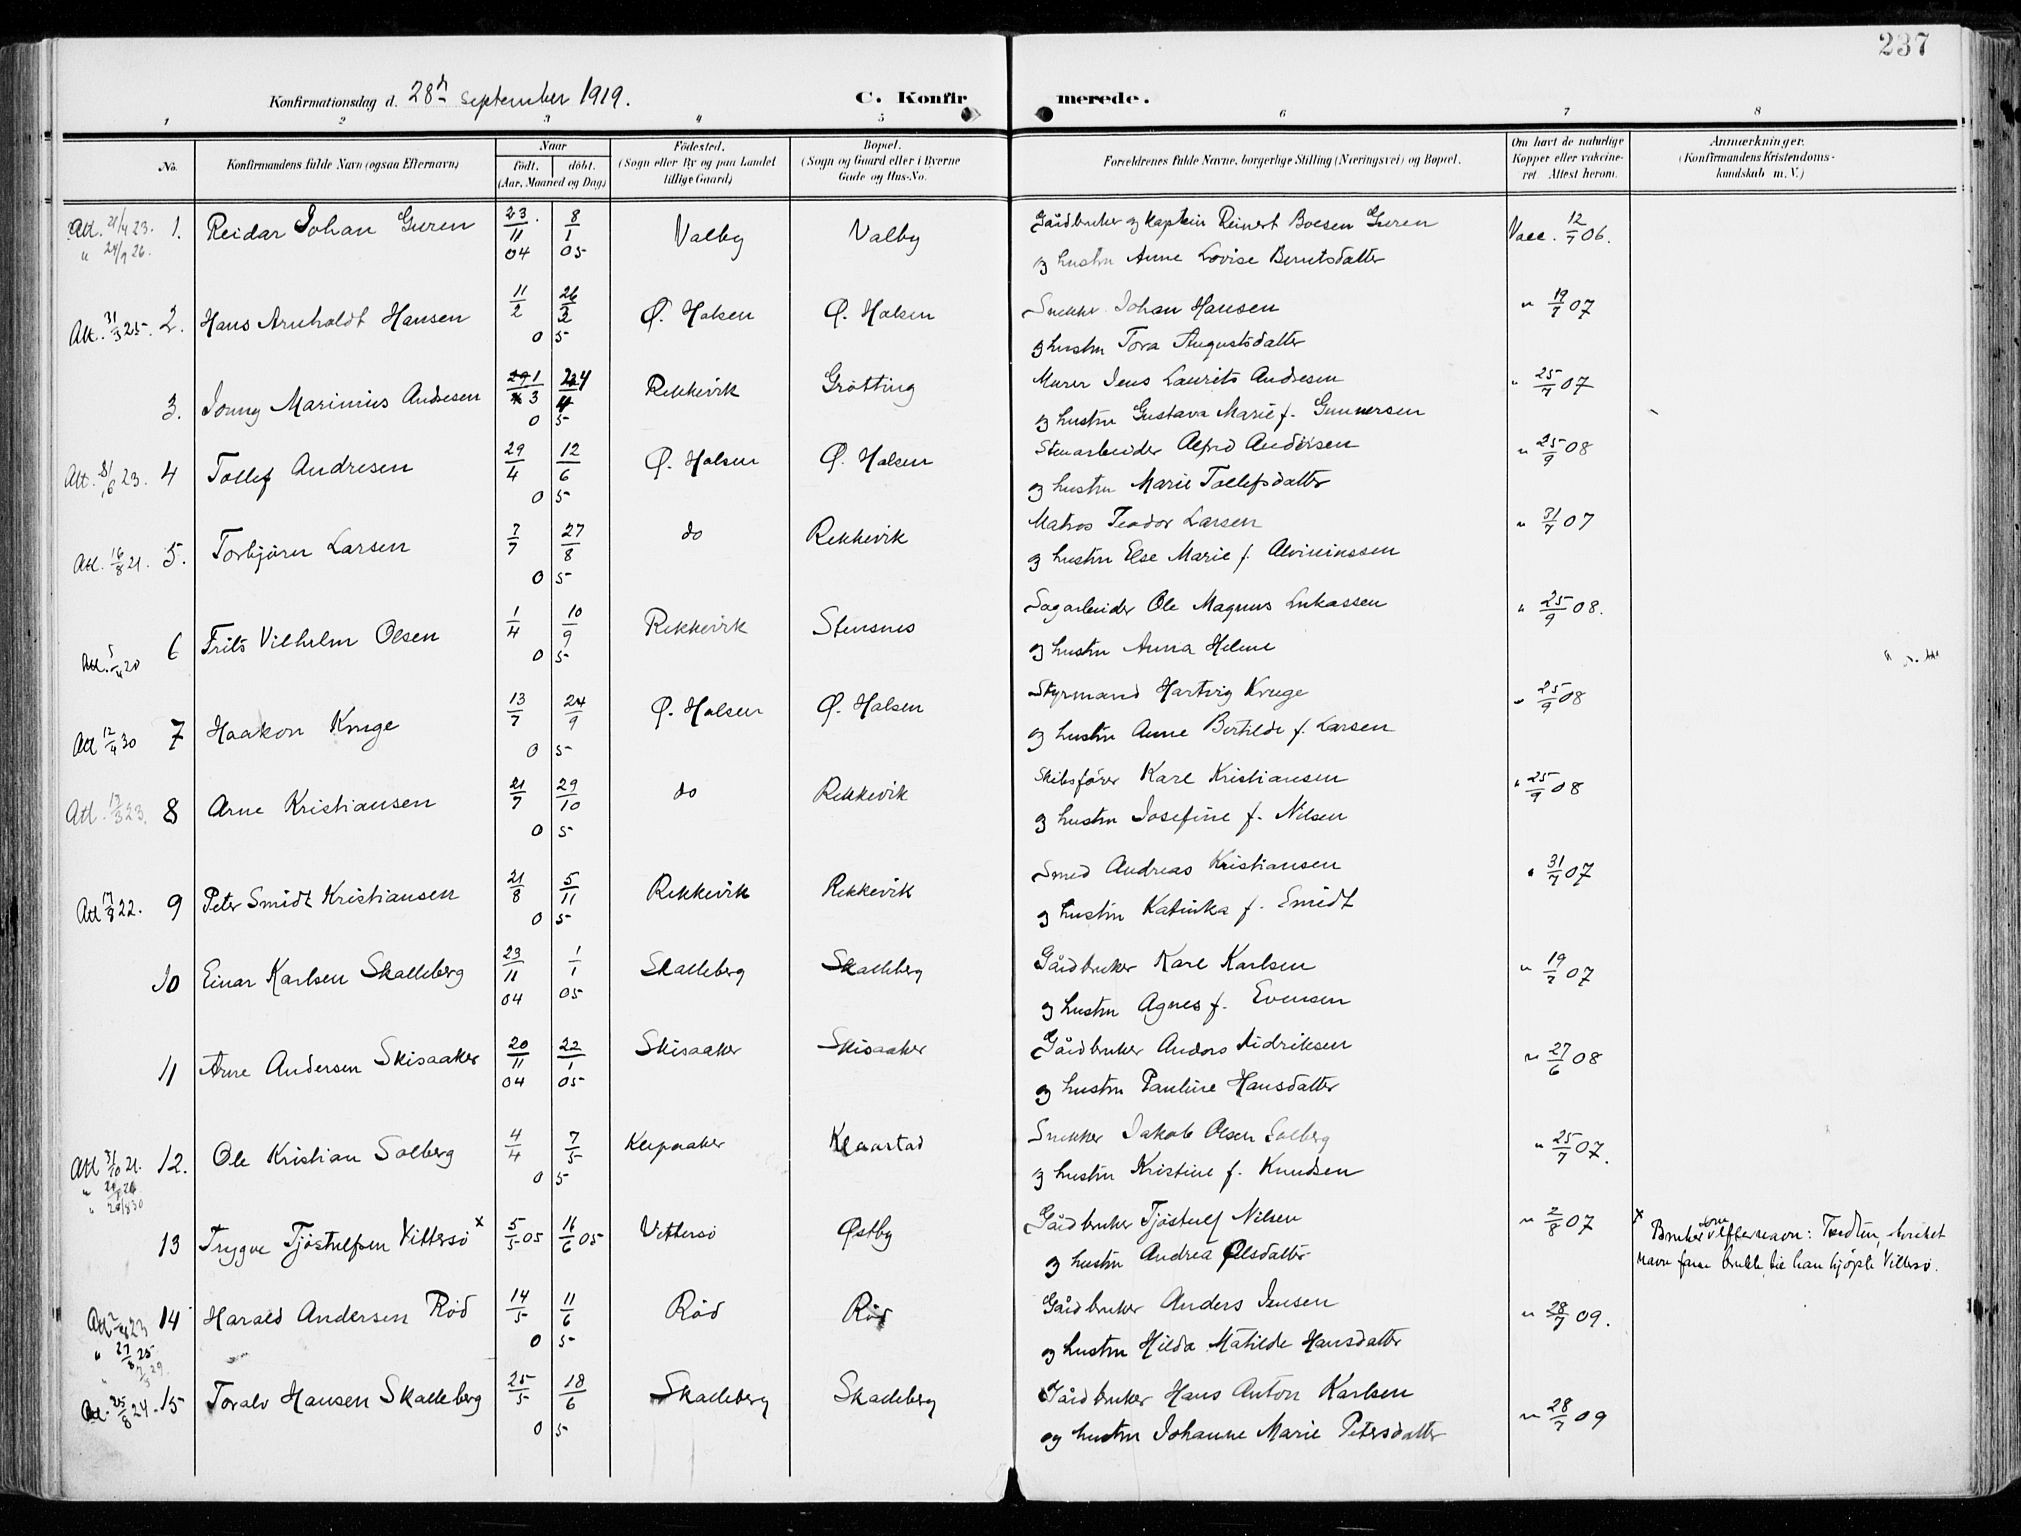 237
Konfirmationsdag d. 28d september 1919. C. Konfirmerede.
1 2 3 4 5 6 7 8
No. Konfirmandens fulde Navn (ogsaa Efternavn) Naar født. døbt. (Aar, Maaned og Dag) Födested. (Sogn eller By og paa Landet tillige Gaard) Bopæl. (Sogn og Gaard eller i Byerne Gade og Hus-No. Forældrenes fulde Navne, borgerlige Stilling (Næringsvei) og Bopæl. Om havt de naturlige Kopper eller vakcineret. Attest herom. Anmærkninger. (Konfirmandens Kristendomskundskab m.V.)
Att. 21/4 23. 1. Reidar Johan Guren 23/11 04 8/1 05 Valby Valby Gårdbruker og kaptein Reinert Boesen Guren Vacc. 12/7 06.
" 24/9 26. og hustru Anne Lovise Berntsdatter
Att. 31/3 25. 2. Hans Arnholdt Hansen 11/2 26/3 05 Ø. Halsen Ø. Halsen Snekker Johan Hansen " 19/7 07
og hustru Tora Augustsdatter
3. Jonny Marinius Andresen 1/3 24/4 05 Rekkevik Grötting Murer Jens Laurits Andresen " 25/7 07
og hustru Gustava Marie f. Gunnersen
Att. 31/6 23. 4 Tollef Andresen 29/4 12/6 05 Ø. Halsen Ø. Halsen Stenarbeider Alfred Andersen " 25/9 08
og hustru Marie Tollefsdatter
Att. 16/8 21. 5. Torbjørn Larsen 7/7 27/8 05 do Rekkevik Matros Teodor Larsen " 31/7 07
og hustru Else Marie f. Alvininssen
Att. 5/4 20 6 Frits Vilhelm Olsen 1/4 10/9 05 Rekkevik Stensnes Sagarbeider Ole Magnus Lukassen " 25/9 08.
og hustru Anna Helene
Att 12/4 30 7 Haakon Kruge 13/7 24/9 05 Ø. Halsen Ø. Halsen Styrmand Hartvig Kruge " 25/9 08
og hustru Anne Bertilde f. Larsen
Att. 13/3 23. 8 Arne Kristiansen 21/7 29/10 05 do Rekkevik Skibsfører Karl Kristiansen " 25/9 08
og hustru Josefine f. Nilsen
Att 17/8 22. 9 Peter Smidt Kristiansen 21/8 5/11 05 Rekkevik Rekkevik Smed Andreas Kristiansen " 31/7 07
og hustru Katinka f. Smidt
10 Einar Karlsen Skalleberg 23/11 04 1/1 05 Skalleberg Skalleberg Gårdbruker Karl Karlsen " 19/7 07
og hustru Agnes f. Evensen
11 Arne Andersen Skisaaker 20/11 04 22/1 05 Skisaaker Skisaaker Gårdbruker Anders Didriksen " 27/6 08
og hustru Pauline Hansdatter
Att 31/10 21. 12. Ole Kristian Solberg 4/4 7/5 05 Klepaaker Klaastad Snekker Jakob Olsen Solberg " 25/7 07.
og hustru Kristine f. Knudsen
13 Trygve Tjøstulfsen Vittersø x 5/5 05 16/6 05 Vittersø Østby Gårdbruker Tjøstulf Nilsen " 2/8 07 x Bruker som efternavn: Tredten, hvilket
og hustru Andrea Olsdatter navn faren brukte, da han kjøpte Vittersø.
14 Harald Andersen Rød 14/5 11/6 05 Rød Rød Gårdbruker Anders Jensen " 28/7 09.
" 27/8 25 og hustru Hilda Matilde Hansdatter
Att. 25/8 24. 15 Toralv Hansen Skalleberg 25/5 18/6 05 Skalleberg Skalleberg Gårdbruker Hans Anton Karlsen " 28/7 09
og hustru Johanne Marie Petersdatter